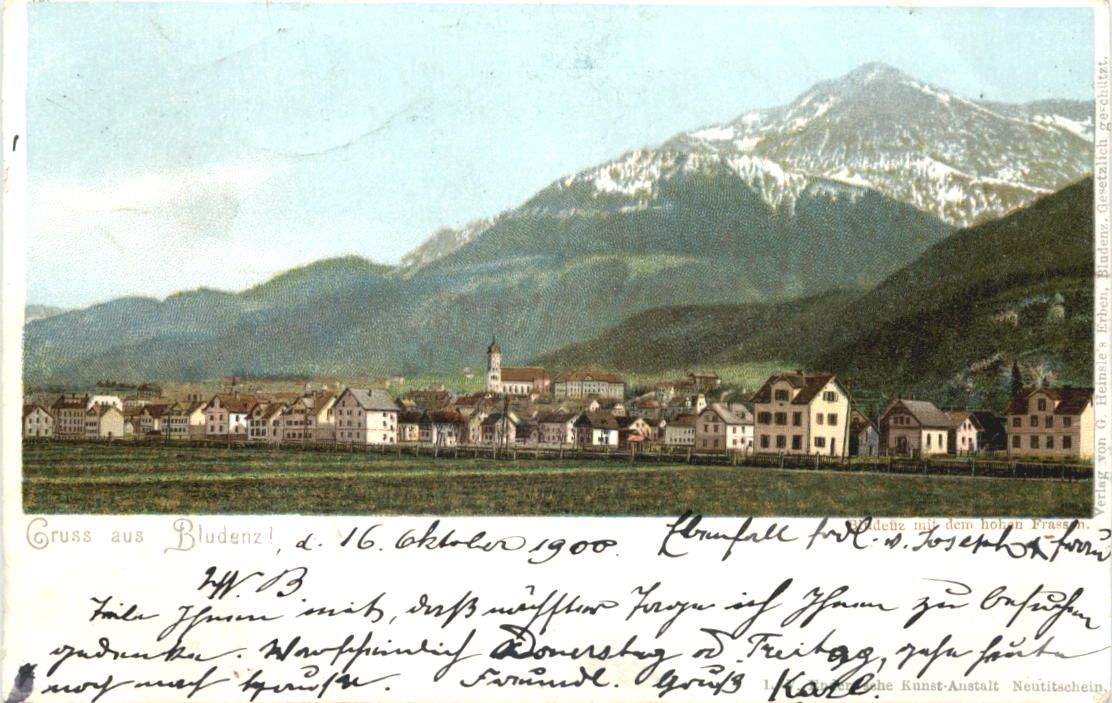 Verlag von G. Heinsle's Erben, Bludenz. Gesetzlich geschützt.
Gruss aus Bludenz!, d. 16. Oktober 1900.
Bludenz mit dem hohen Frassen.
Ebenfall frdl. v. Joseph & Frau
W. B
Teile Ihnen mit, daß nächster Tage ich Ihnen zu besuchen
gedenke. Warscheinlich Donerstag od. Freitag, gehe heute
noch nach Hause. Freundl. Gruß Karl.
Kunst-Anstalt Neutitschein.